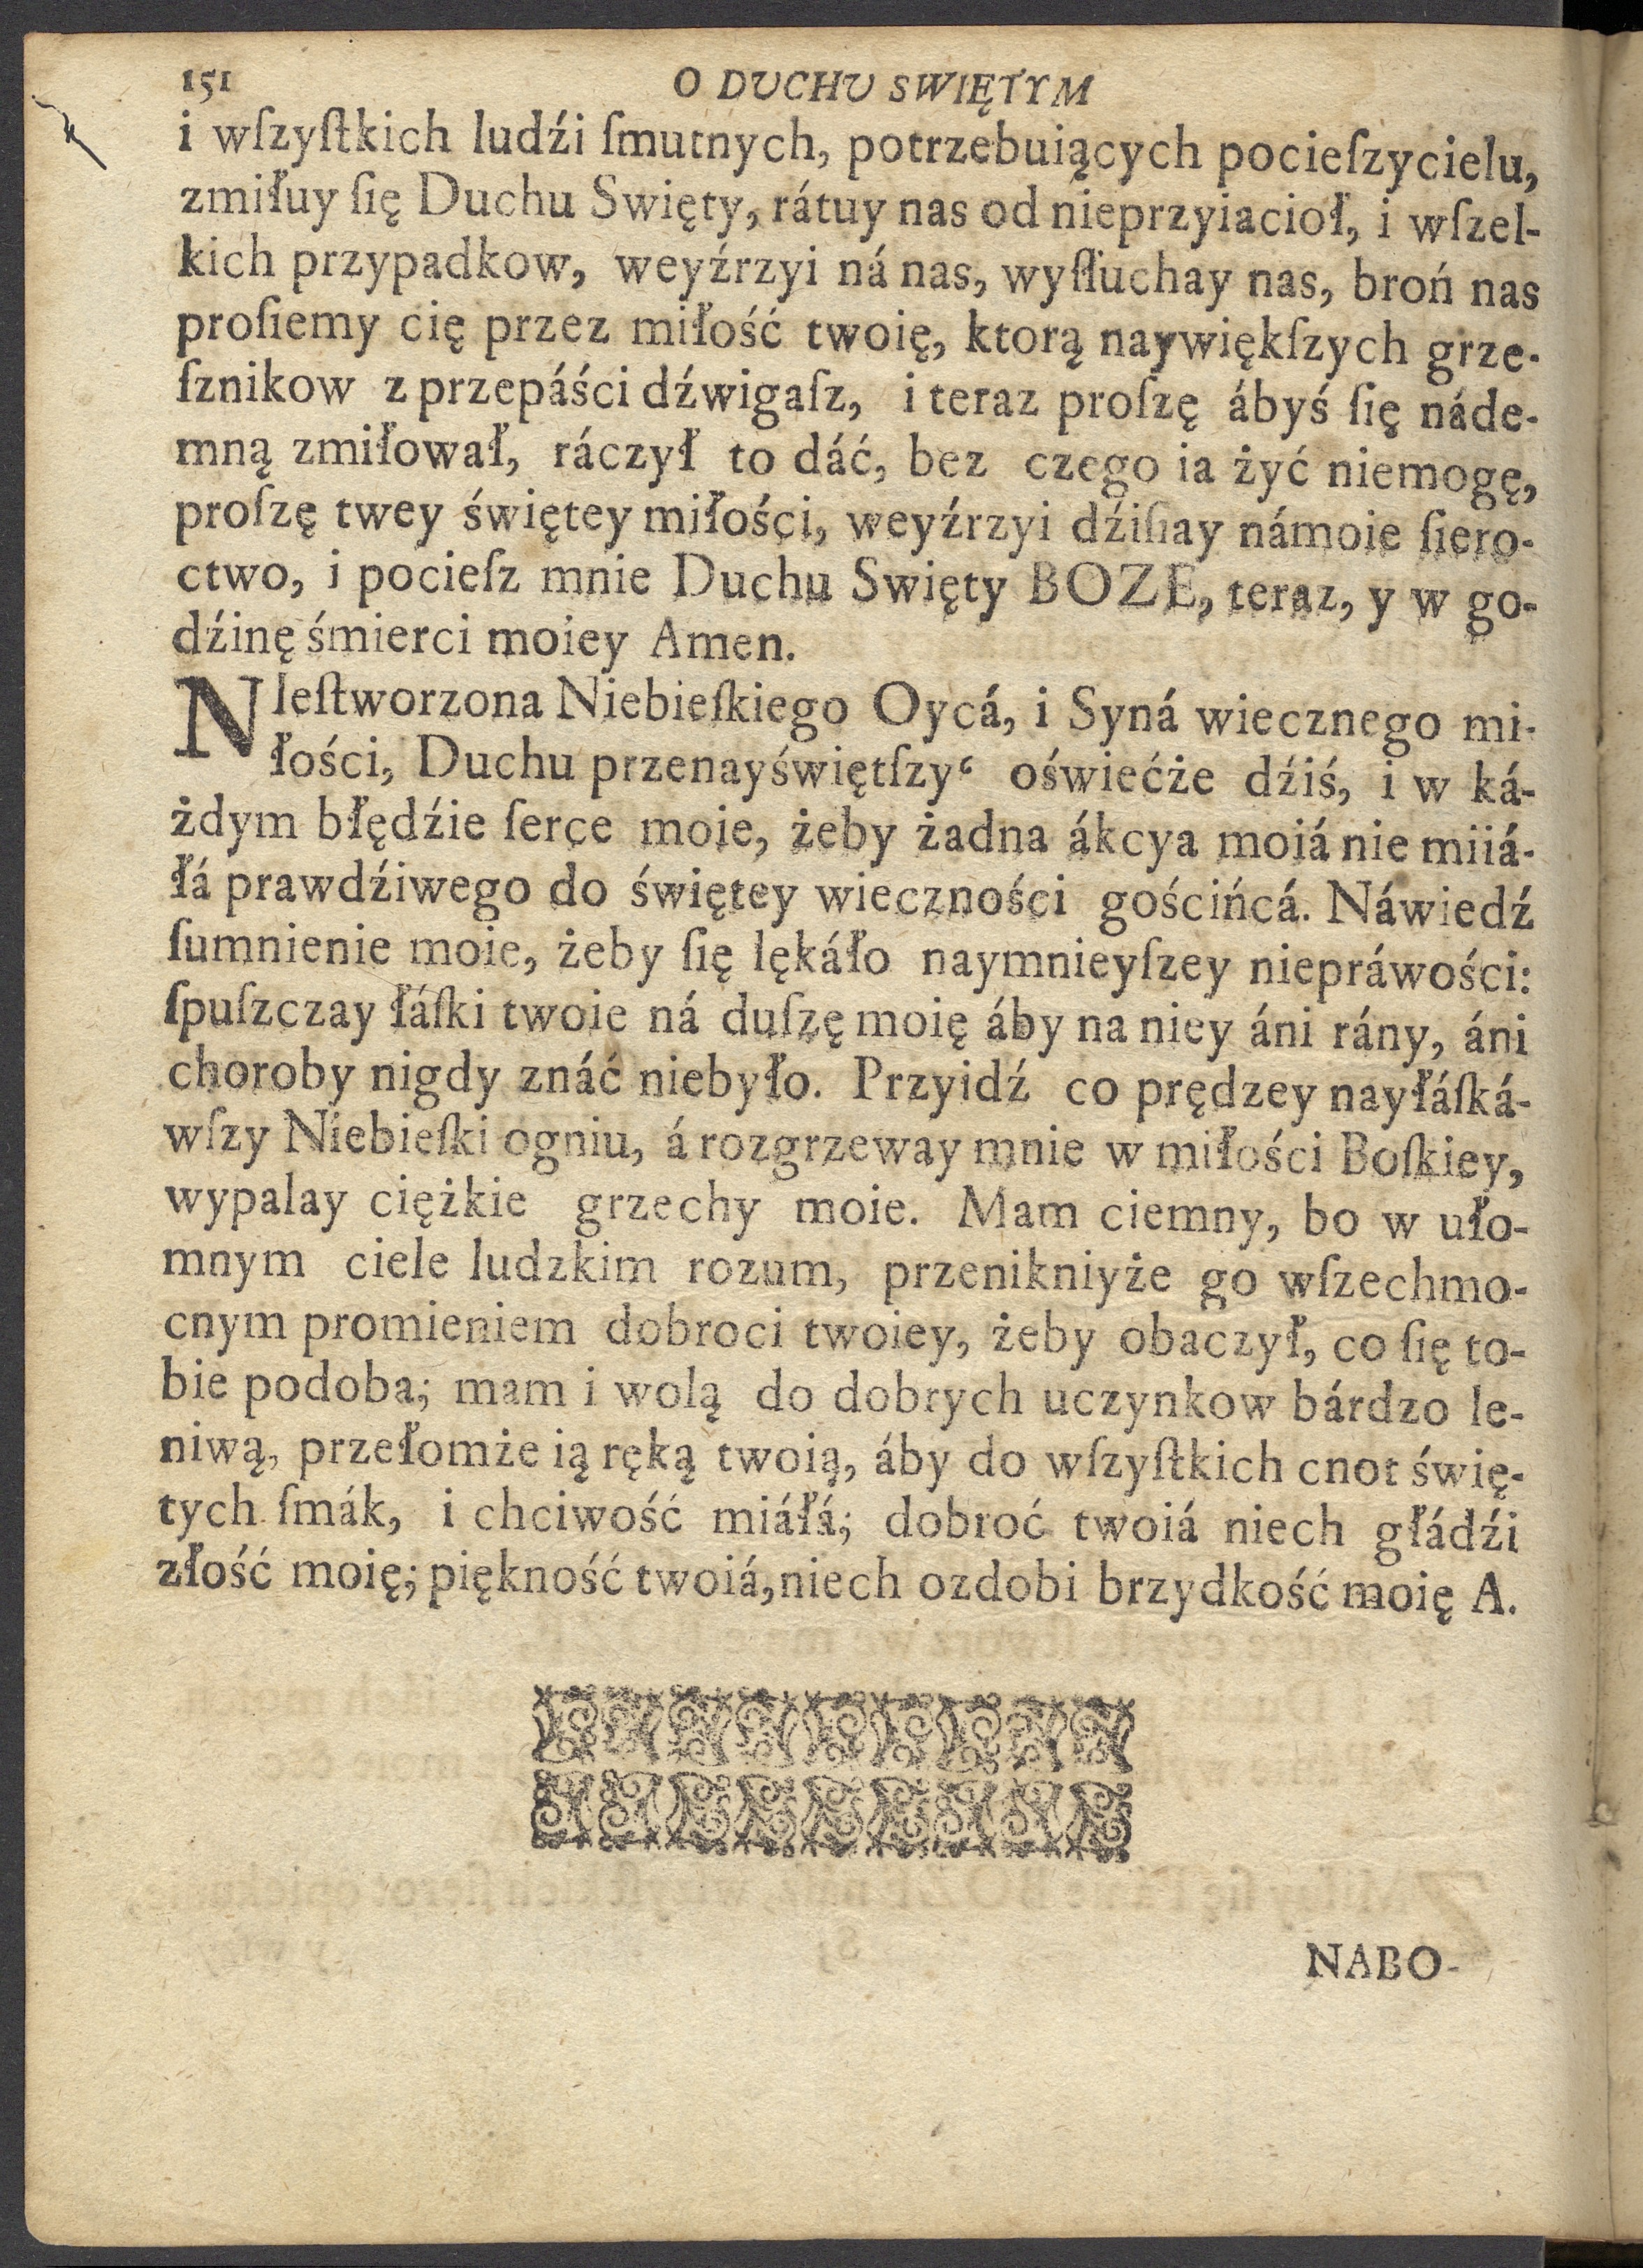 151 O DUCHU SWIĘTYM
i wſzyſtkich ludźi ſmutnych, potrzebuiących pocieſzycielu,
zmiłuy ſię Duchu Swięty, rátuy nas od nieprzyiacioł, i wſzel-
kich przypadkow, weyźrzyi ná nas, wyſłuchay nas, broń nas
proſiemy cię przez miłość twoię, ktorą naywiękſzych grze-
ſznikow z przepáści dźwigaſz, i teraz proſzę ábyś ſię náde-
mną zmiłował, ráczył to dáć, bez czego ia żyć niemogę,
proſzę twey świętey miłości, weyźrzyi dźiſiay námoie ſiero-
ctwo, i pocieſz mnie Duchu Swięty BOZE, teraz, y w go-
dźinę śmierci moiey Amen.
NIeſtworzona Niebieſkiego Oycá, i Syná wiecznego mi-
łości, Duchu przenayświętſzy‘ oświećże dźiś, i w ká-
żdym błędźie ſerce moie, żeby żadna ákcya moiá nie miiá-
łá prawdźiwego do świętey wieczności gościńcá. Náwiedź
ſumnienie moie, żeby ſię lękáło naymnieyſzey niepráwości:
ſpuſzczay łáſki twoie ná duſzę moię áby na niey áni rány, áni
choroby nigdy znáć niebyło. Przyidź co prędzey nayłáſká-
wſzy Niebieſki ogniu, á rozgrzeway mnie w miłości Boſkiey,
wypalay ciężkie grzechy moie. Mam ciemny, bo w uło-
mnym ciele ludzkim rozum, przenikniyże go wſzechmo-
cnym promieniem dobroci twoiey, żeby obaczył, co ſię to-
bie podoba; mam i wolą do dobrych uczynkow bárdzo le-
niwą, przełomże ią ręką twoią, áby do wſzyſtkich cnot świę-
tych ſmák, i chciwość miáłá; dobroć twoiá niech głádźi
złość moię; piękność twoiá, niech ozdobi brzydkość moię A.
NABO-